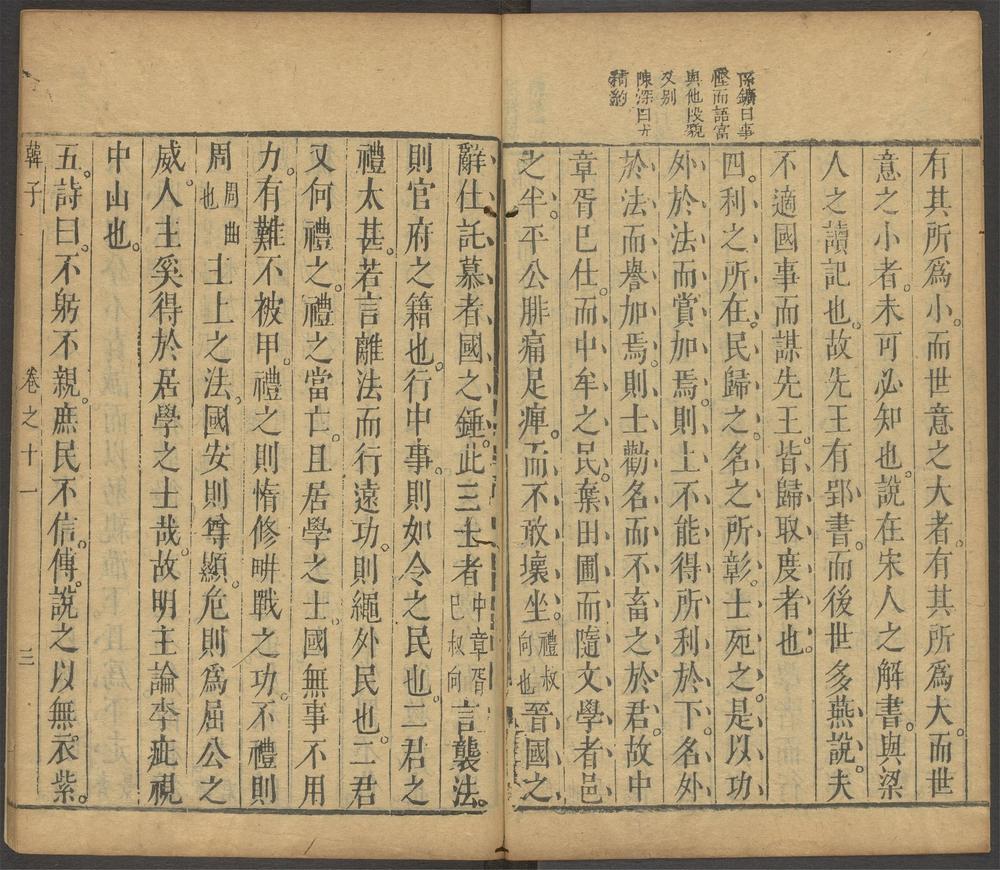 孫鑛曰事
㥦而語富
與他段貌
又別
陳深曰尤
精約
有其所爲小。而世意之大者。有其所爲大。而世
意之小者。未可必知也。說在宋人之解書。與梁
人之讀記也。故先王有郢書。而後世多燕說。夫
不適國事而謀先王。皆歸取度者也。
四。利之所在。民歸之。名之所彰。士死之。是以功
外於法而賞加焉。則上不能得所利於下。名外
於法而譽加焉。則士勸名而不畜之於君。故中
章胥已仕。而中牟之民。棄田圃而隨文學者邑
之半。平公腓痛足痺。而不敢壞坐。禮叔向也晉國之
辭仕託慕者國之錘。此三士者中章胥巳叔向言襲法。
則官府之籍也。行中事。則如令之民也。二君之
禮太甚。若言離法而行遠功。則繩外民也。二君
又何禮之。禮之當亡。且居學之士。國無事不用
力。有難不被甲。禮之則惰修畊戰之功。不禮則
周周曲也主上之法。國安則尊顯。危則爲屈公之
威。人主奚得於居學之士哉。故明主論李疵視
中山也。
五。詩曰。不躬不親。庶民不信。傳。說之以無。衣紫。
韓子 卷之十一 三